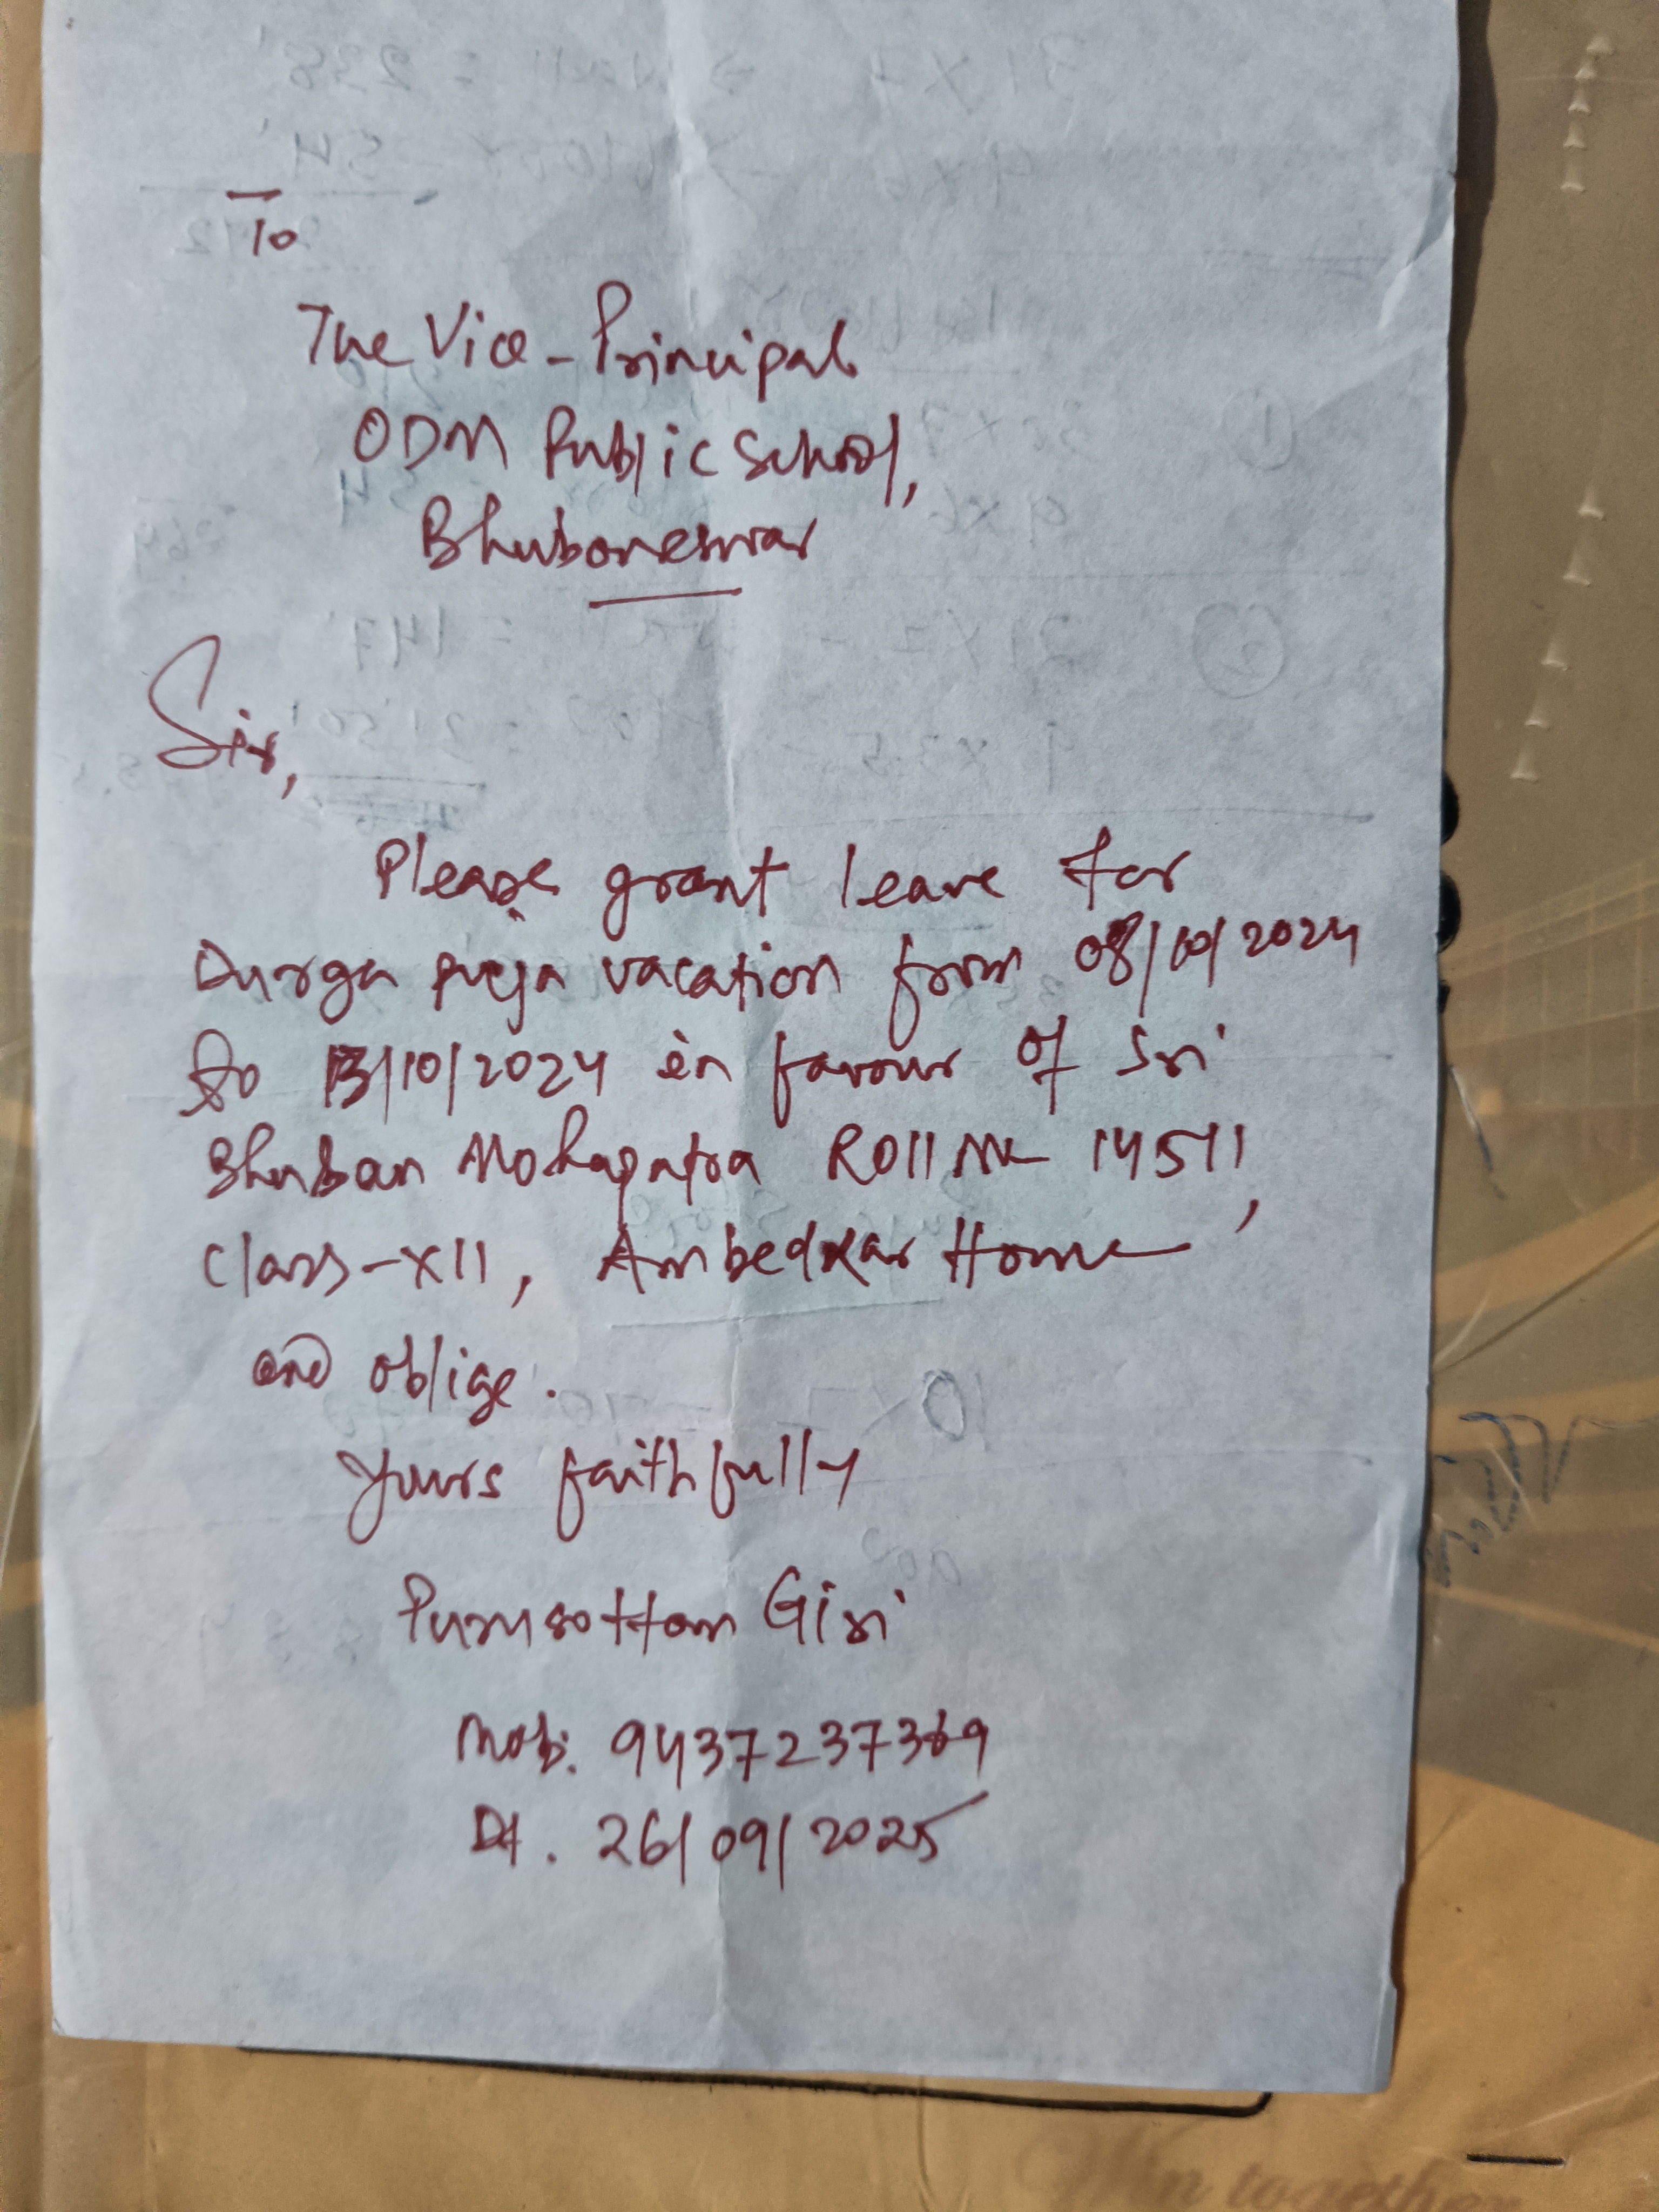 To
The Vice-Principal
ODM Public School,
Bhuboneswar
Sir,
Please grant leave for
Durga puja vacation from 08/10/2024
to 13/10/2024 in favour of Sri
Bhuban Mohapatra Roll No 14511,
Class-XII, Ambedkar Home
and oblige.
Yours faithfully
Purusottam Giri
Mob: 9437237369
Dt. 26/09/2025
Win together